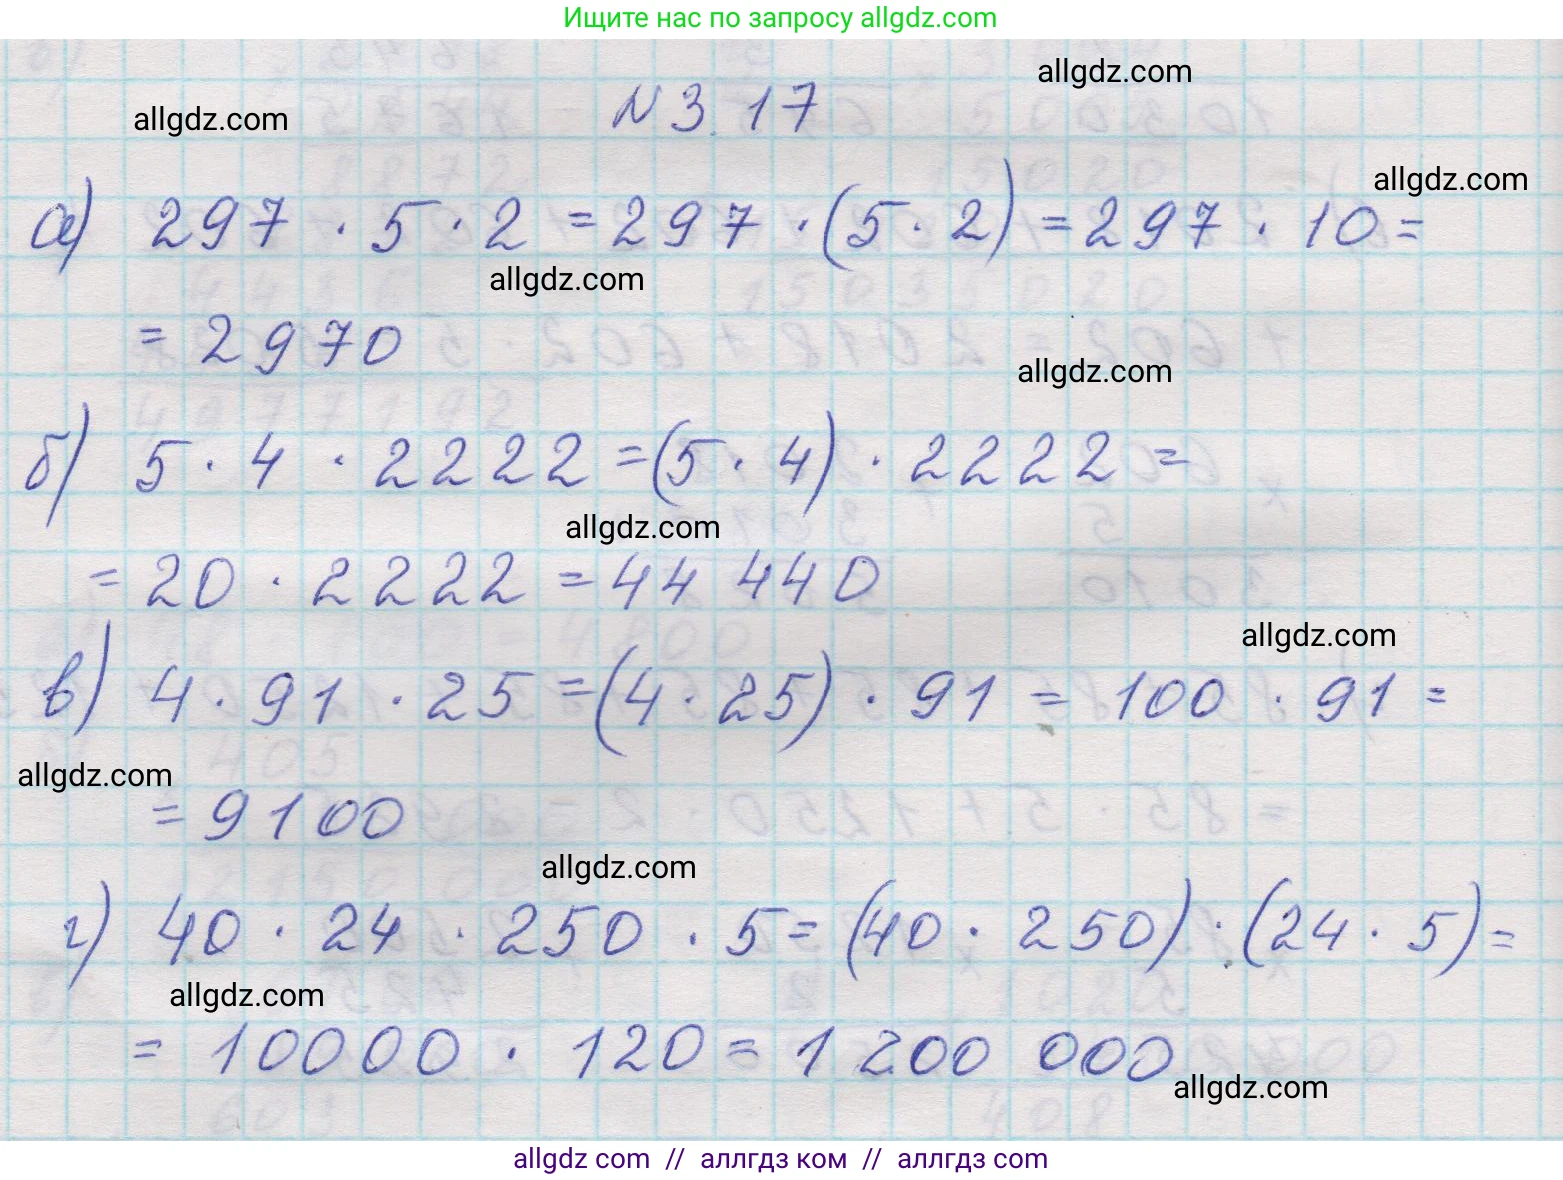 Ищите нас по запросу allgdz.com
allgdz.com
N 3.17
allgdz.com
allgdz.com
а) 297 · 5 · 2 = 297 · (5 · 2) = 297 · 10 =
allgdz.com
= 2970
allgdz.com
б) 5 · 4 · 2222 = (5 · 4) · 2222 =
allgdz.com
= 20 · 2222 = 44 440
allgdz.com
в) 4 · 91 · 25 = (4 · 25) · 91 = 100 · 91 =
allgdz.com
= 9100
allgdz.com
г) 40 · 24 · 250 · 5 = (40 · 250) · (24 · 5) =
allgdz.com
= 10000 · 120 = 1 200 000
allgdz.com
allgdz com // аллгдз ком // аллгдз com